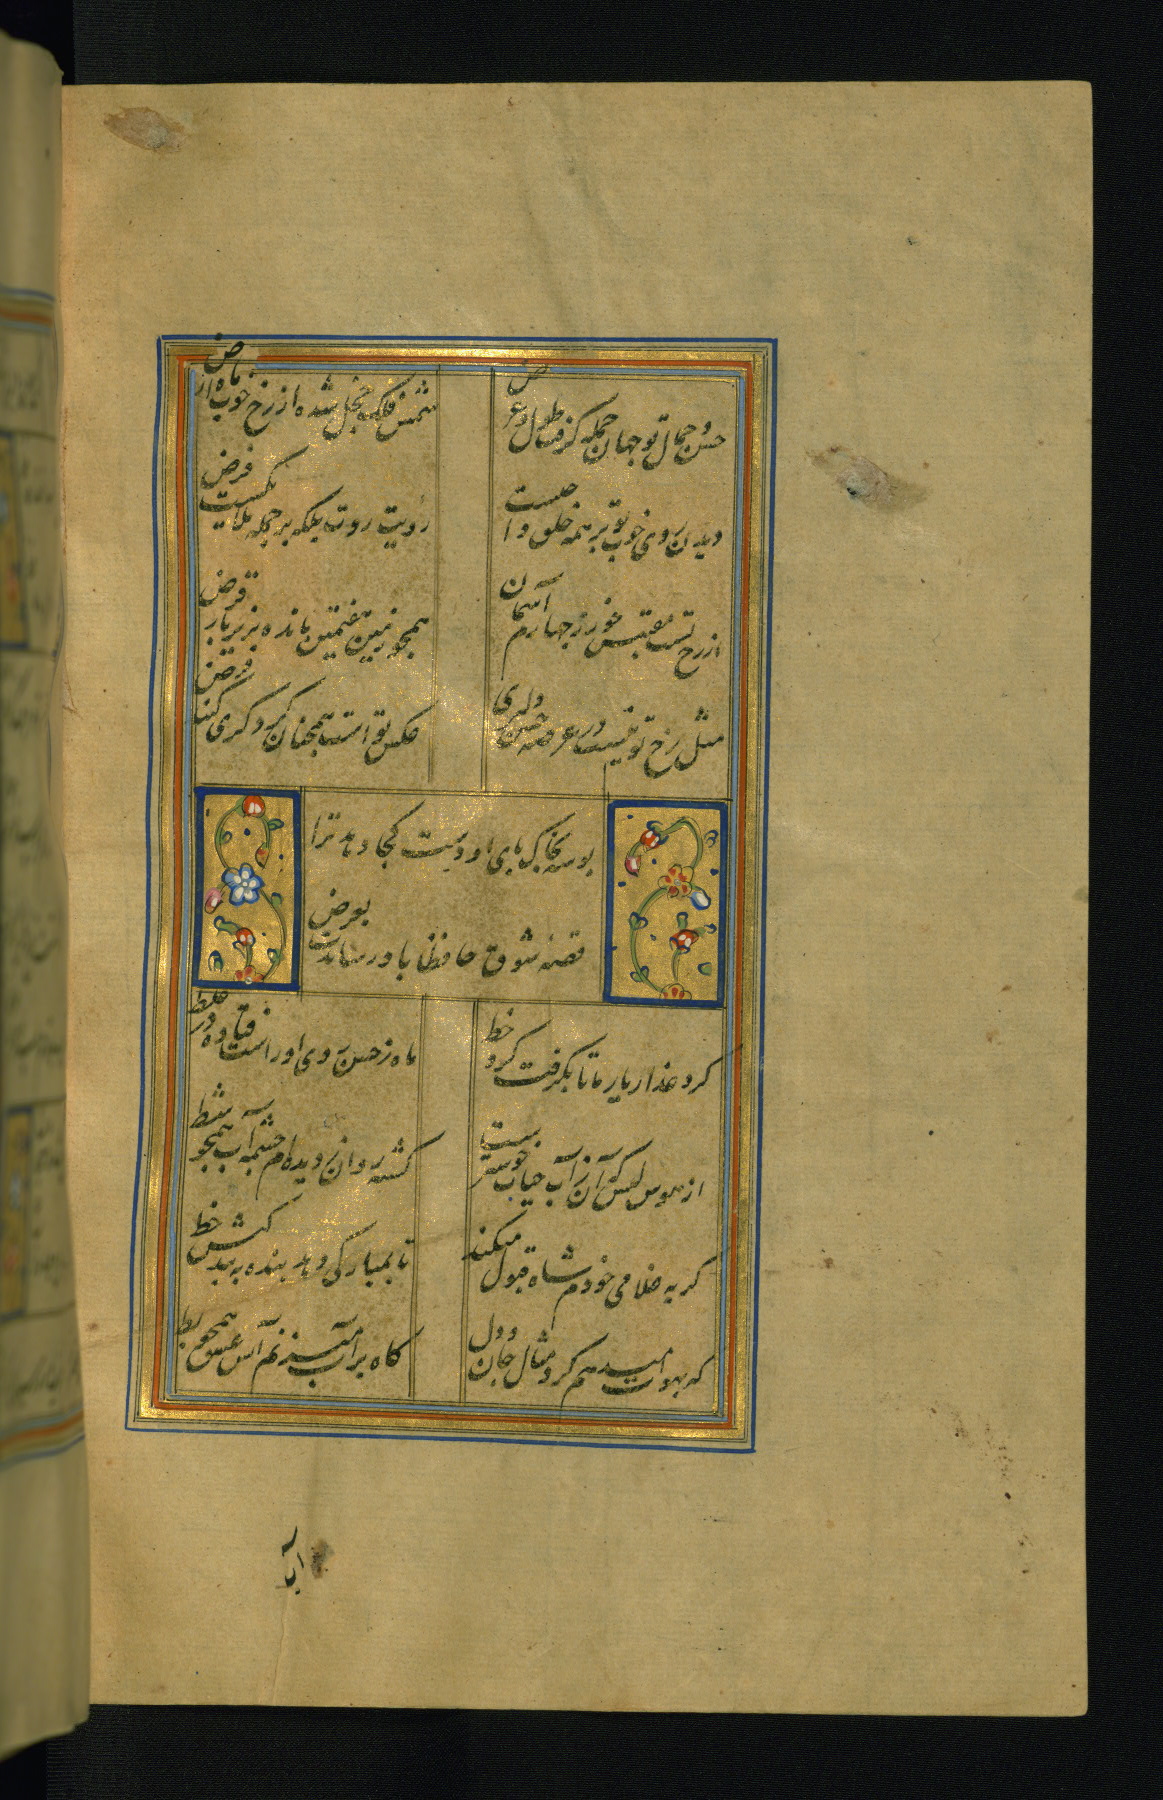 حسن و جمال تو جهان جمله گرفت طول و عرض
شمس فلک خجل شده از رخ خوب ماه ارض
دیدن روی خوب تو بر همه خلق واجبست
رؤیت روت بلکه بر جمله ملایکست فرض
از رخ تست مقتبس خور ز چهارم آسمان
همچو زمین هفتمین مانده بزیر بار قرض
مثل رخ تو نیست در عرصه حسن و دلبری
عکس تو است همچنان گر دگری کنند فرض
بوسه بخاک پای او دست کجا دهد ترا
قصه شوق حافظا باد رساندت بعرض
گرد عذار یار ما تا بگرفت گرد خط
ماه ز حسن روی او راست فتاده در غلط
از هوس لبش که آن ز آب حیات خوشترست
گشته روان ز دیده‌ام چشمه آب همچو شط
گر به غلامی خودم شاه قبول میکند
تا بمبارکی دهد بنده به بندگیش خط
که بهوات میدهم گرد مثال جان و دل
گاه بر آب میزنم آتش عشق همچو بط
آب